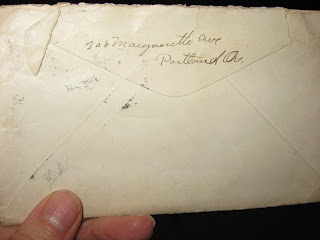 308 Marguerite Ave
Portland Ore.